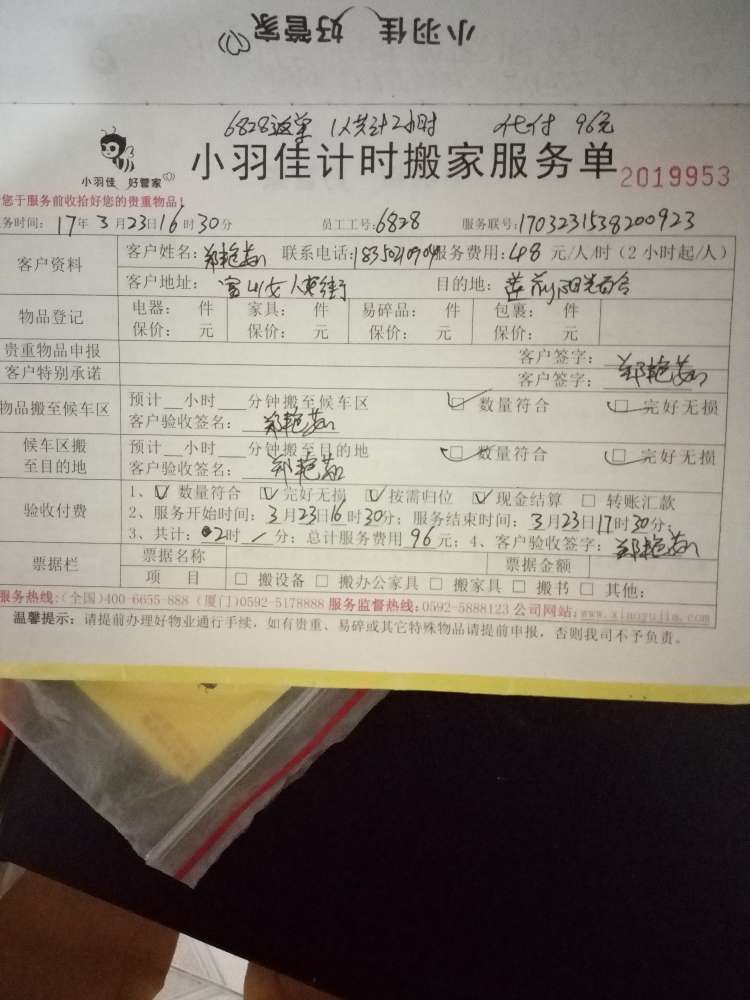 小羽佳 好管家
6828返单 1人共计2小时 代付 96元
小羽佳 好管家
小羽佳计时搬家服务单 2019953
您于服务前收拾好您的贵重物品!
务时间: 17年 3月23日16时30分 员工工号: 6828 服务联号: 1703231538200923
客户资料
客户姓名: 联系电话: 服务费用: 48 元/人/时 (2小时起/人)
客户地址: 富山女人英街 目的地: 莲前阳光百合
物品登记
电器: 件 家具: 件 易碎品: 件 包裹: 件
保价: 元 保价: 元 保价: 元 保价: 元
贵重物品申报 客户签字:
客户特别承诺 客户签字:
物品搬至候车区
预计__小时__分钟搬至候车区 数量符合 完好无损
客户验收签名:
候车区搬至目的地
预计__小时__分钟搬至目的地 数量符合 完好无损
客户验收签名:
验收付费
1、☑ 数量符合 ☑ 完好无损 ☑ 按需归位 ☑ 现金结算 □ 转账汇款
2、服务开始时间: 3月23日16时30分; 服务结束时间: 3月23日17时30分;
3、共计: 2时 / 分; 总计服务费用 96元; 4、客户验收签字:
票据栏
票据名称 票据金额
项 目 □ 搬设备 □ 搬办公家具 □ 搬家具 □ 搬书 □ 其他:
服务热线:(全国)400-6655-888 (厦门)0592-5178888 服务监督热线:0592-5888123 公司网站:www.xiaoyujia.com
温馨提示: 请提前办理好物业通行手续, 如有贵重、易碎或其它特殊物品请提前申报, 否则我司不予负责。